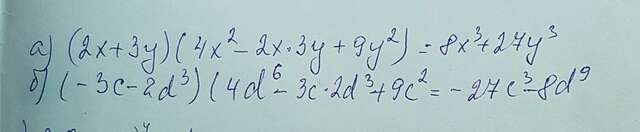 а) (2x+3y)(4x²-2x·3y+9y²)=8x³+27y³
б) (-3c-2d³)(4d⁶-3c·2d³+9c²=-27c³-8d⁹